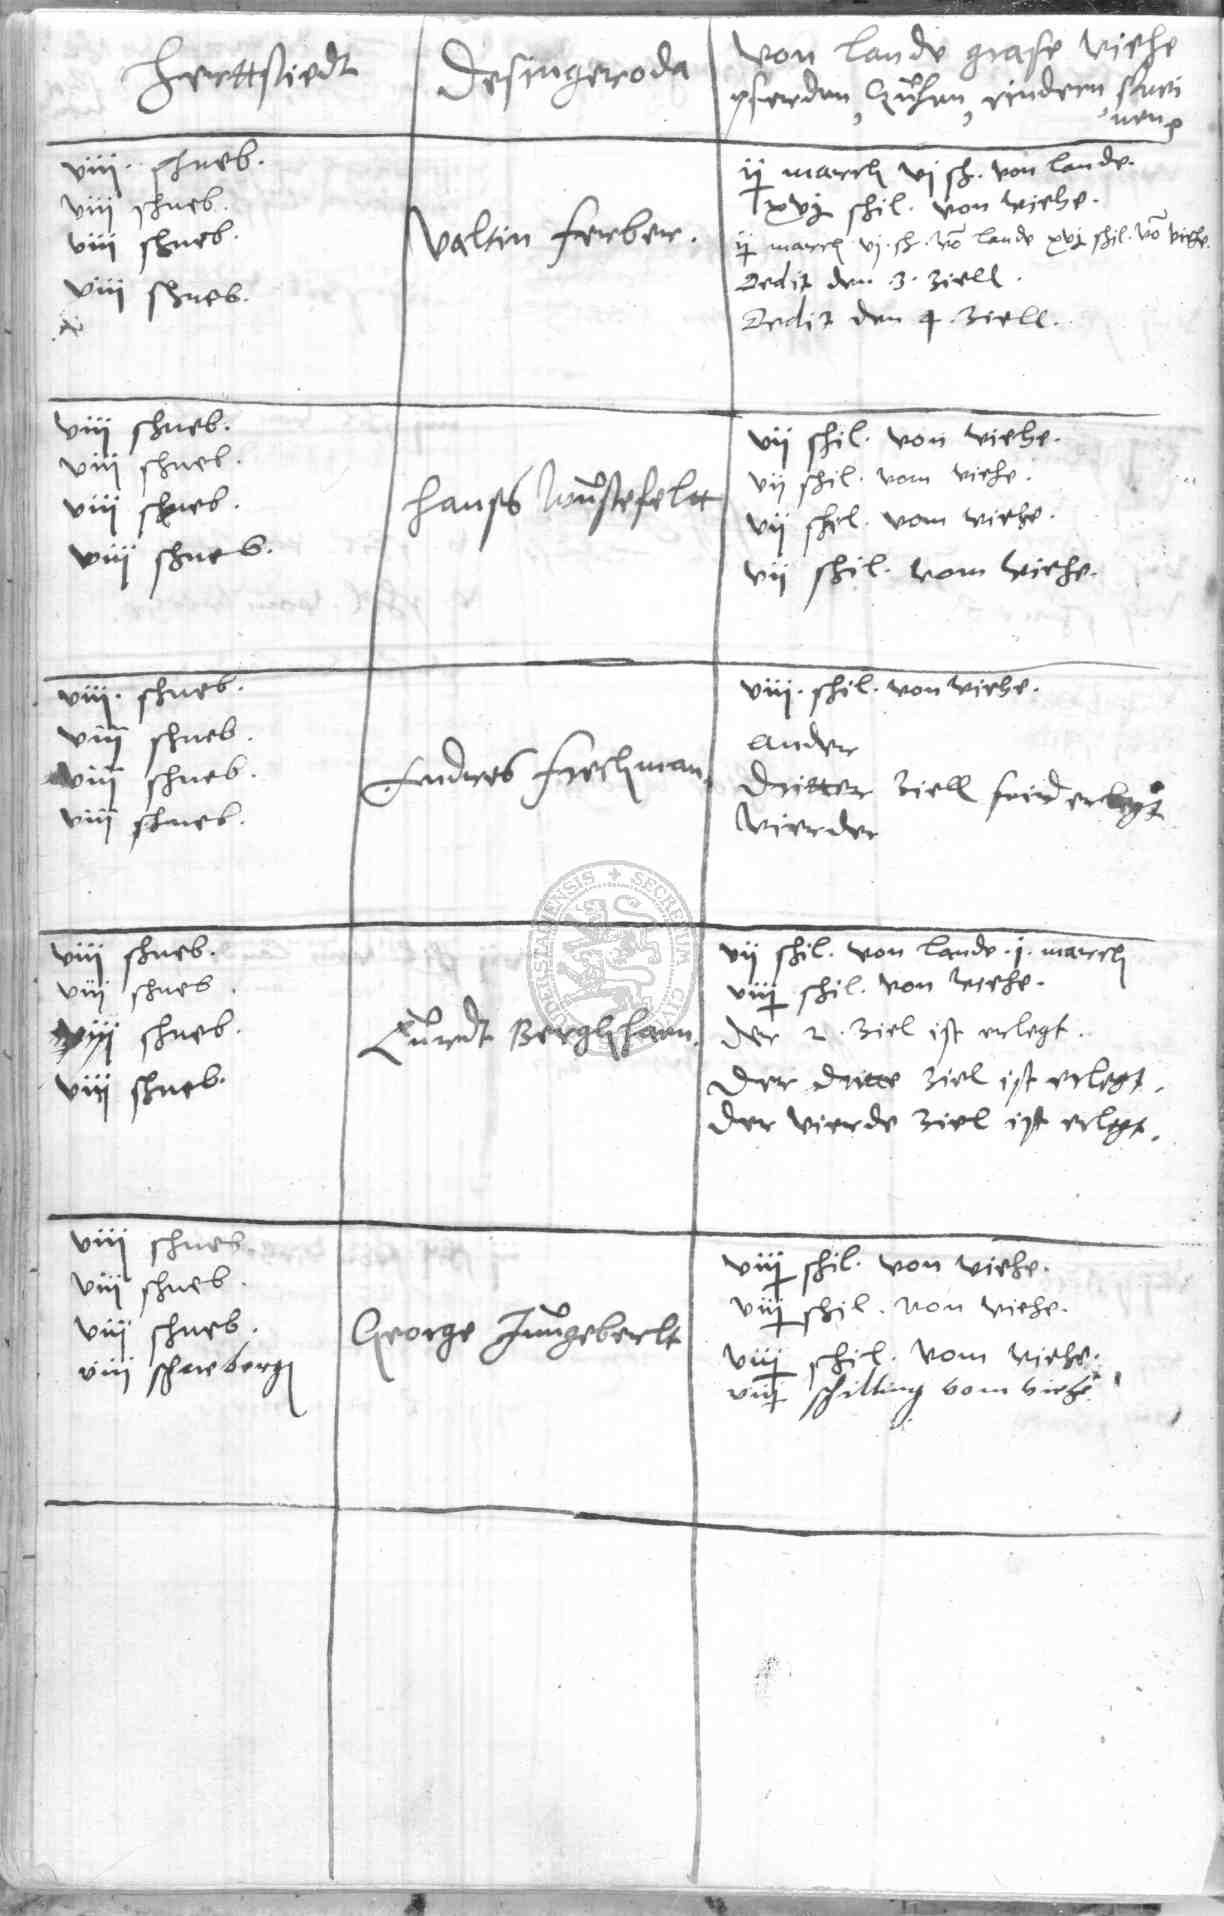 Herttstiedt
Desingeroda
Von lande grase Viehe
pferden, Kühen, rindern, schwei
nen
viii. schneb.
viii schneb.
viii schneb.
viii schneb.
Valtin Ferber.
ij march vj sch. von lande.
xvj schil. von viehe.
ij march vj. sch. vō lande xvj schil. vō viehe.
Dedit den .3. ziell.
Dedit den 4. ziell.
viii schneb.
viii schneb.
viii schneb.
viii schneb.
Hanss Wüstefeltt
vii schil. von viehe.
vij schil. vom viehe.
vii schil. vom viehe.
vii schil. vom viehe.
viii. schneb.
viii schneb.
viii schneb.
viii schneb.
Endres Frechman.
viii. schil. von viehe.
Ander
Dritter ziell seind erlegt
Vierder
viii schneb.
viii schneb.
viii schneb.
viii schneb.
Curdt Berghhaen.
vii schil. von lande .j. march
viii schil. von viehe.
Der 2. ziel ist erlegt.
Der dritte ziel ist erlegt.
Der vierde ziel ist erlegt.
viii schneb.
viii schneb.
viii schneb.
viii schnebergh
George Jungeberlt
viij schil. von viehe.
viij schil. von viehe.
viij schil. vom viehe.
viij schilling vom viehe.
SECRETUM CIVI